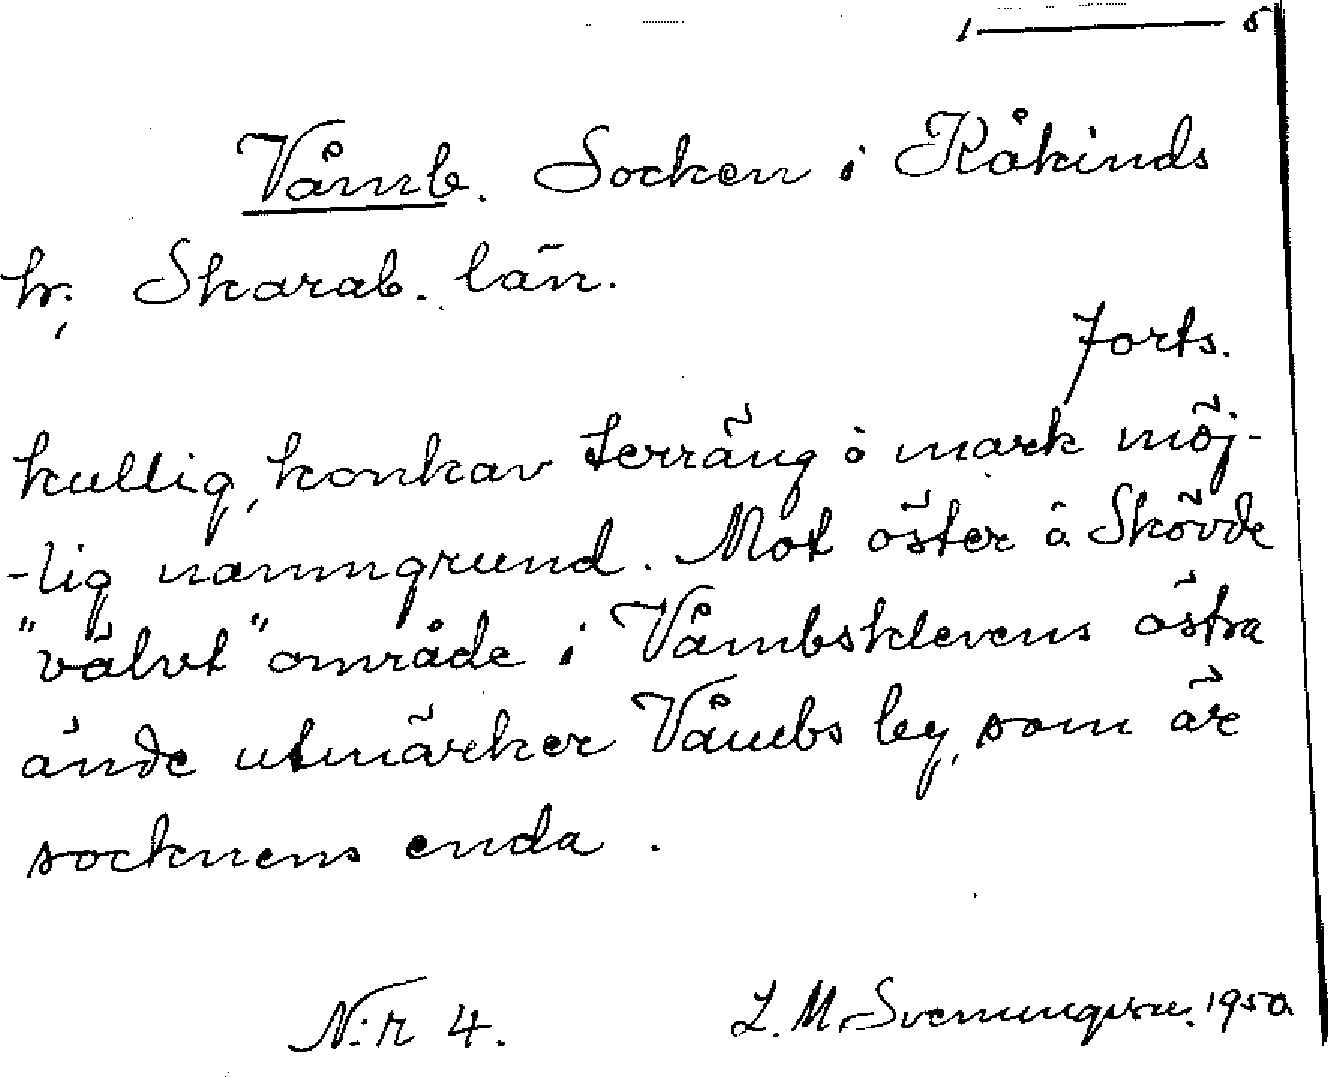 1 ——— 5
Våmb. Socken i Kåkinds
hr; Skarab. län.
Forts.
kullig, konkav terräng o mark möj-
-lig namngrund. Mot öster å Skövde
"välvt" område i Våmbsklevens östra
ände utmärker Våmbs by, som är
socknens enda.
N:r 4.
L. M. Svenungsson. 1950